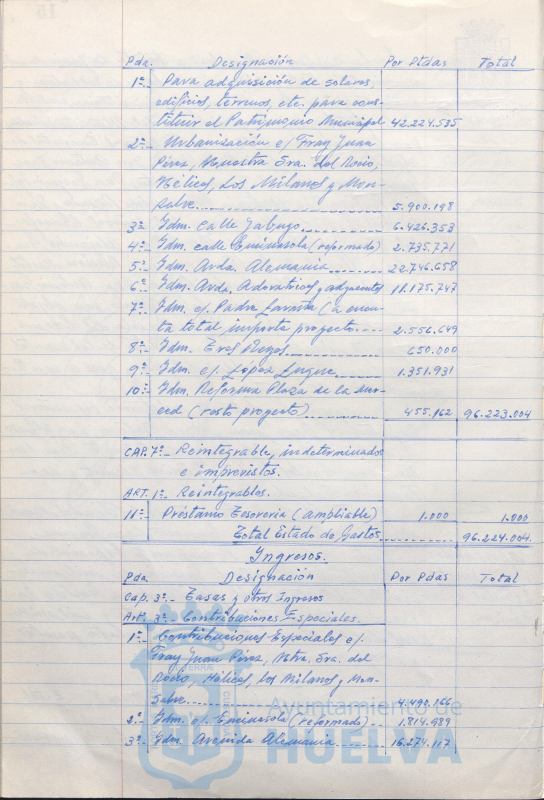 Pda. Designación Por Ptdas Total
1ª.- Para adquisición de solares,
edificios, terrenos, etc. para cons-
tituir el Patrimonio Municipal 42.224.535
2ª.- Urbanización c/ Fray Juan
Pérez, Nuestra Sra. del Rocío,
Hélice, Los Milanos y Mon-
salve 5.900.198
3ª Idm. Calle Jabugo 6.426.353
4ª.- Idm. calle Encinasola (reformado) 2.735.771
5ª.- Idm. Avda. Alemania 22.746.658
6ª.- Idm. Avda. Adoratrices y adyacentes 11.175.747
7ª.- Idm. c/. Padre Laraña (a cuen-
ta total, importe proyecto.--- 2.556.649
8ª.- Idm. Tres Reyes 650.000
9ª.- Idm. c/. López Luque 1.351.931
10ª.- Idm. Reforma Plaza de la Mer-
ced (resto proyecto) 455.162 96.223.004
CAP. 7º.- Reintegrable, indeterminados
e imprevistos.
ART. 1º.- Reintegrables.
11ª.- Préstamo Tesorería (ampliable) 1.000 1.000
Total Estado de Gastos 96.224.004.
Ingresos.
Pda. Designación Por Pdas Total
Cap. 3º.- Tasas y otros Ingresos
Art. 3º.- Contribuciones Especiales.
1ª.- Contribuciones Especiales c/.
Fray Juan Pérez, Ntra. Sra. del
Rocío, Hélice, Los Milanos y Mon-
salve 4.499.166
2ª.- Idm. c/. Encinasola (reformado) 1.814.989
3ª.- Idm. Avenida Alemania 16.274.117
Ayuntamiento de
HUELVA